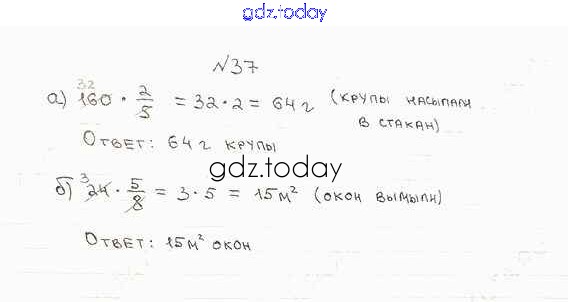 gdz.today
№37
32
а) 160 · 2/5 = 32 · 2 = 64 г (крупы насыпали
в стакан)
Ответ: 64 г крупы
gdz.today
б) ³24 · 5/8 = 3 · 5 = 15 м² (окон вымыли)
Ответ: 15 м² окон